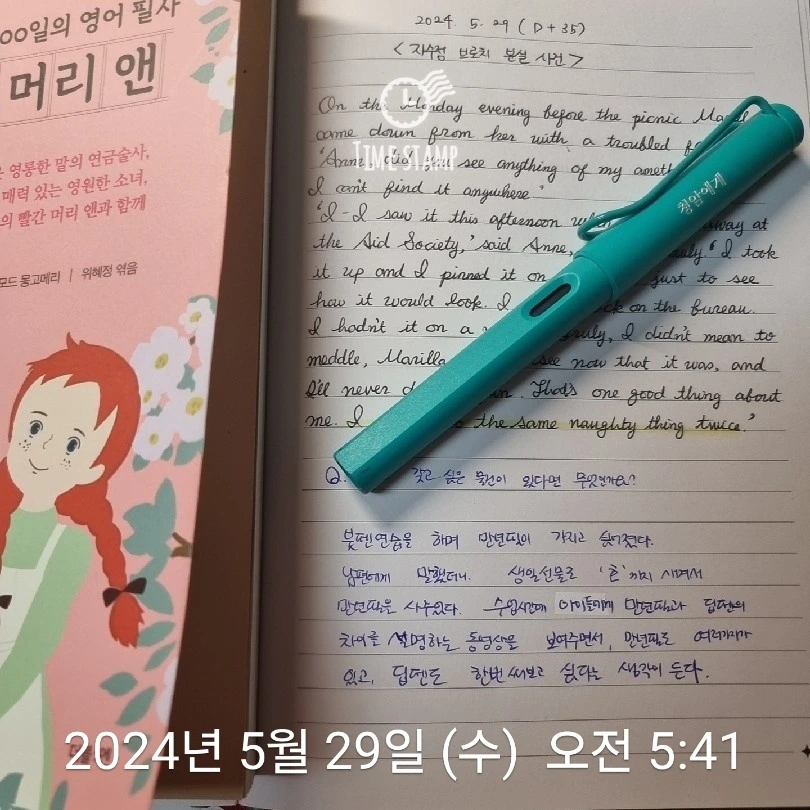 00일의 영어 필사
머리 앤
영롱한 말의 연금술사,
매력 있는 영원한 소녀,
의 빨간 머리 앤과 함께
모드 몽고메리 | 위혜정 엮음
2024. 5. 29 ( D + 35)
< 자수정 브로치 분실 사건 >
On the Monday evening before the picnic
came down from her with a troubled
'Anne, did you see anything of my
I can't find it anywhere'
'I-I saw it this afternoon away at
the Aid Society,' said Anne, 'I took
it up and I pinned it on just to see
how it would look. I on the bureau.
I hadn't it on a I didn't mean to
meddle, Marilla see now that it was, and
I'll never That's one good thing about
me. I the same naughty thing twice.'
청암에게
TIME STAMP
Q. 갖고 싶은 물건이 있다면 무엇인가요?
붓펜연습을 하며 만년필이 가지고 싶어졌다.
남편에게 말했더니. 생일선물로 '촌'까지 새겨서
만년필을 사주었다. 수업시간에 아이들에게 만년필과 딥펜의
차이를 설명하는 동영상을 보여주면서, 만년필도 여러가지가
있고, 딥펜도 한번 써보고 싶다는 생각이 든다.
2024년 5월 29일 (수) 오전 5:41